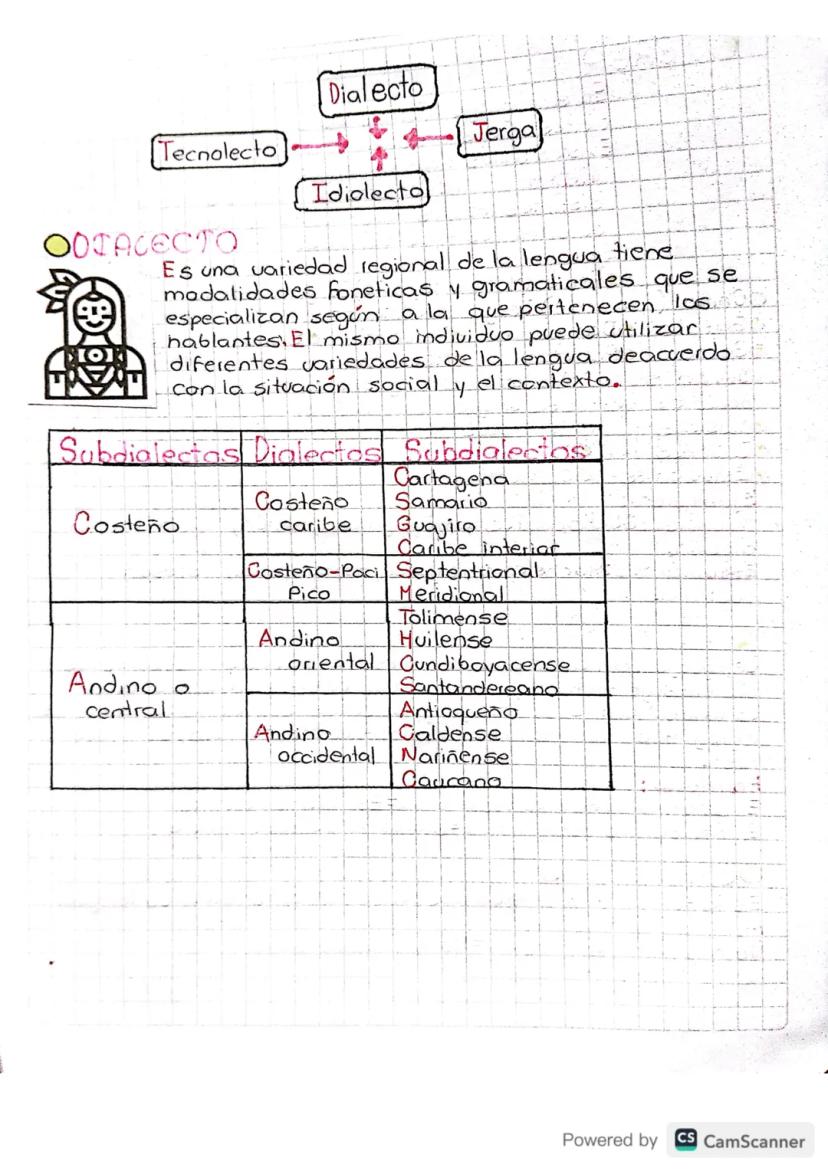 Dialecto
Tecnolecto
Jerga
Idiolecto
DIALECTO
Es una variedad regional de la lengua tiene
modalidades foneticas y gramaticales que se
especializan según a la que pertenecen los
hablantes. El mismo individuo puede utilizar
diferentes variedades de la lengua deacuerdo
con la situación social y el contexto.
Subdialectos Dialectos Subdialectos
Costeño
Costeño
caribe
Cartagena
Samario
Guajiro
Caribe interior
Costeño-Paci
Pico
Septentrional
Meridional
Andino o
central
Andino
oriental
Tolimense
Huilense
Cundiboyacense
Santandereano
Andino
occidental
Antioqueño
Caldense
Nariñense
Caucano
Powered by CS CamScanner